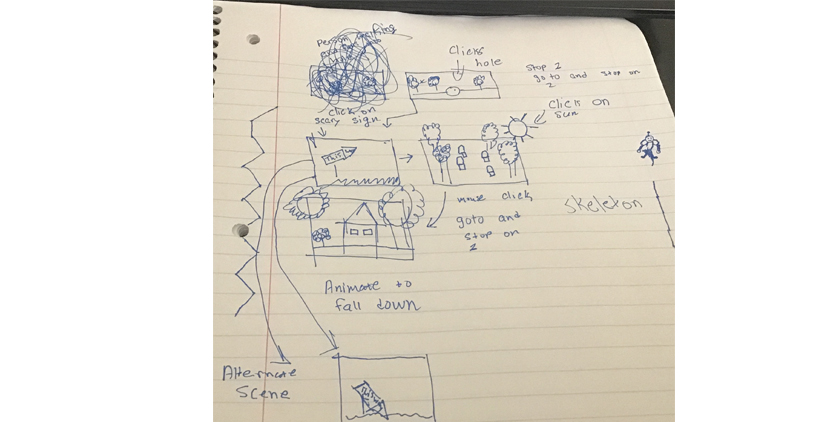 Person walking
Clicks
hole
Stop 2
go to and stop on
2
click on
scary sign
Click on
sun
This
mouse click
goto and
stop on
2
Skeleton
Animate to
fall down
Alternate
Scene